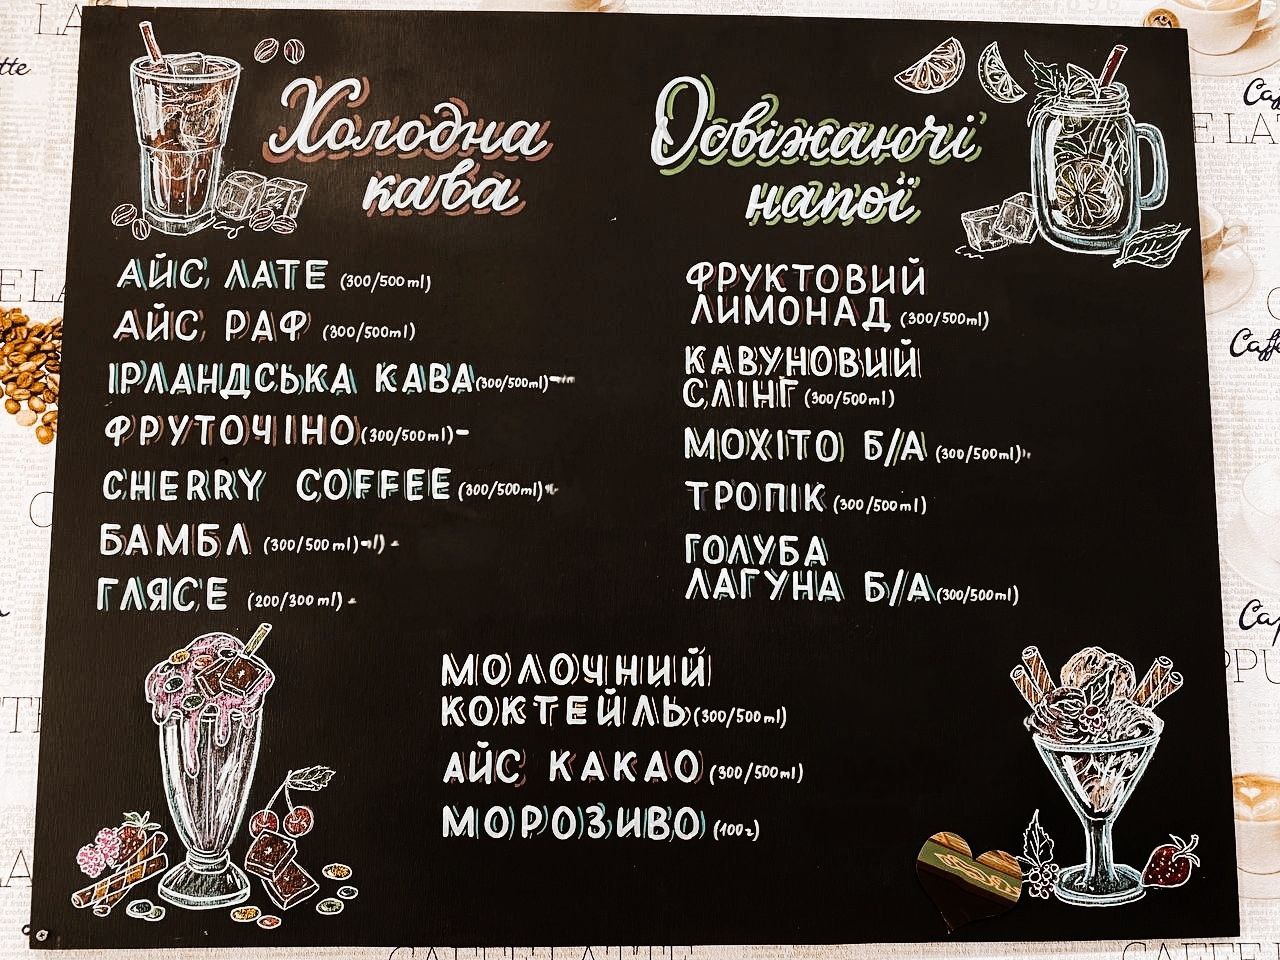 Холодна
кава
АЙС ЛАТЕ (300/500 ml)
АЙС РАФ (300/500ml)
ІРЛАНДСЬКА КАВА (300/500ml)
ФРУТОЧІНО (300/500ml)
CHERRY COFFEE (300/500ml)
БАМБЛ (300/500 ml)
ГЛЯСЕ (200/300 ml)
Освіжаючі
напої
ФРУКТОВИЙ
ЛИМОНАД (300/500ml)
КАВУНОВИЙ
СЛІНГ (300/500ml)
МОХІТО Б/А (300/500ml)
ТРОПІК (300/500ml)
ГОЛУБА
ЛАГУНА Б/А (300/500ml)
МОЛОЧНИЙ
КОКТЕЙЛЬ (300/500ml)
АЙС КАКАО (300/500ml)
МОРОЗИВО (100г)